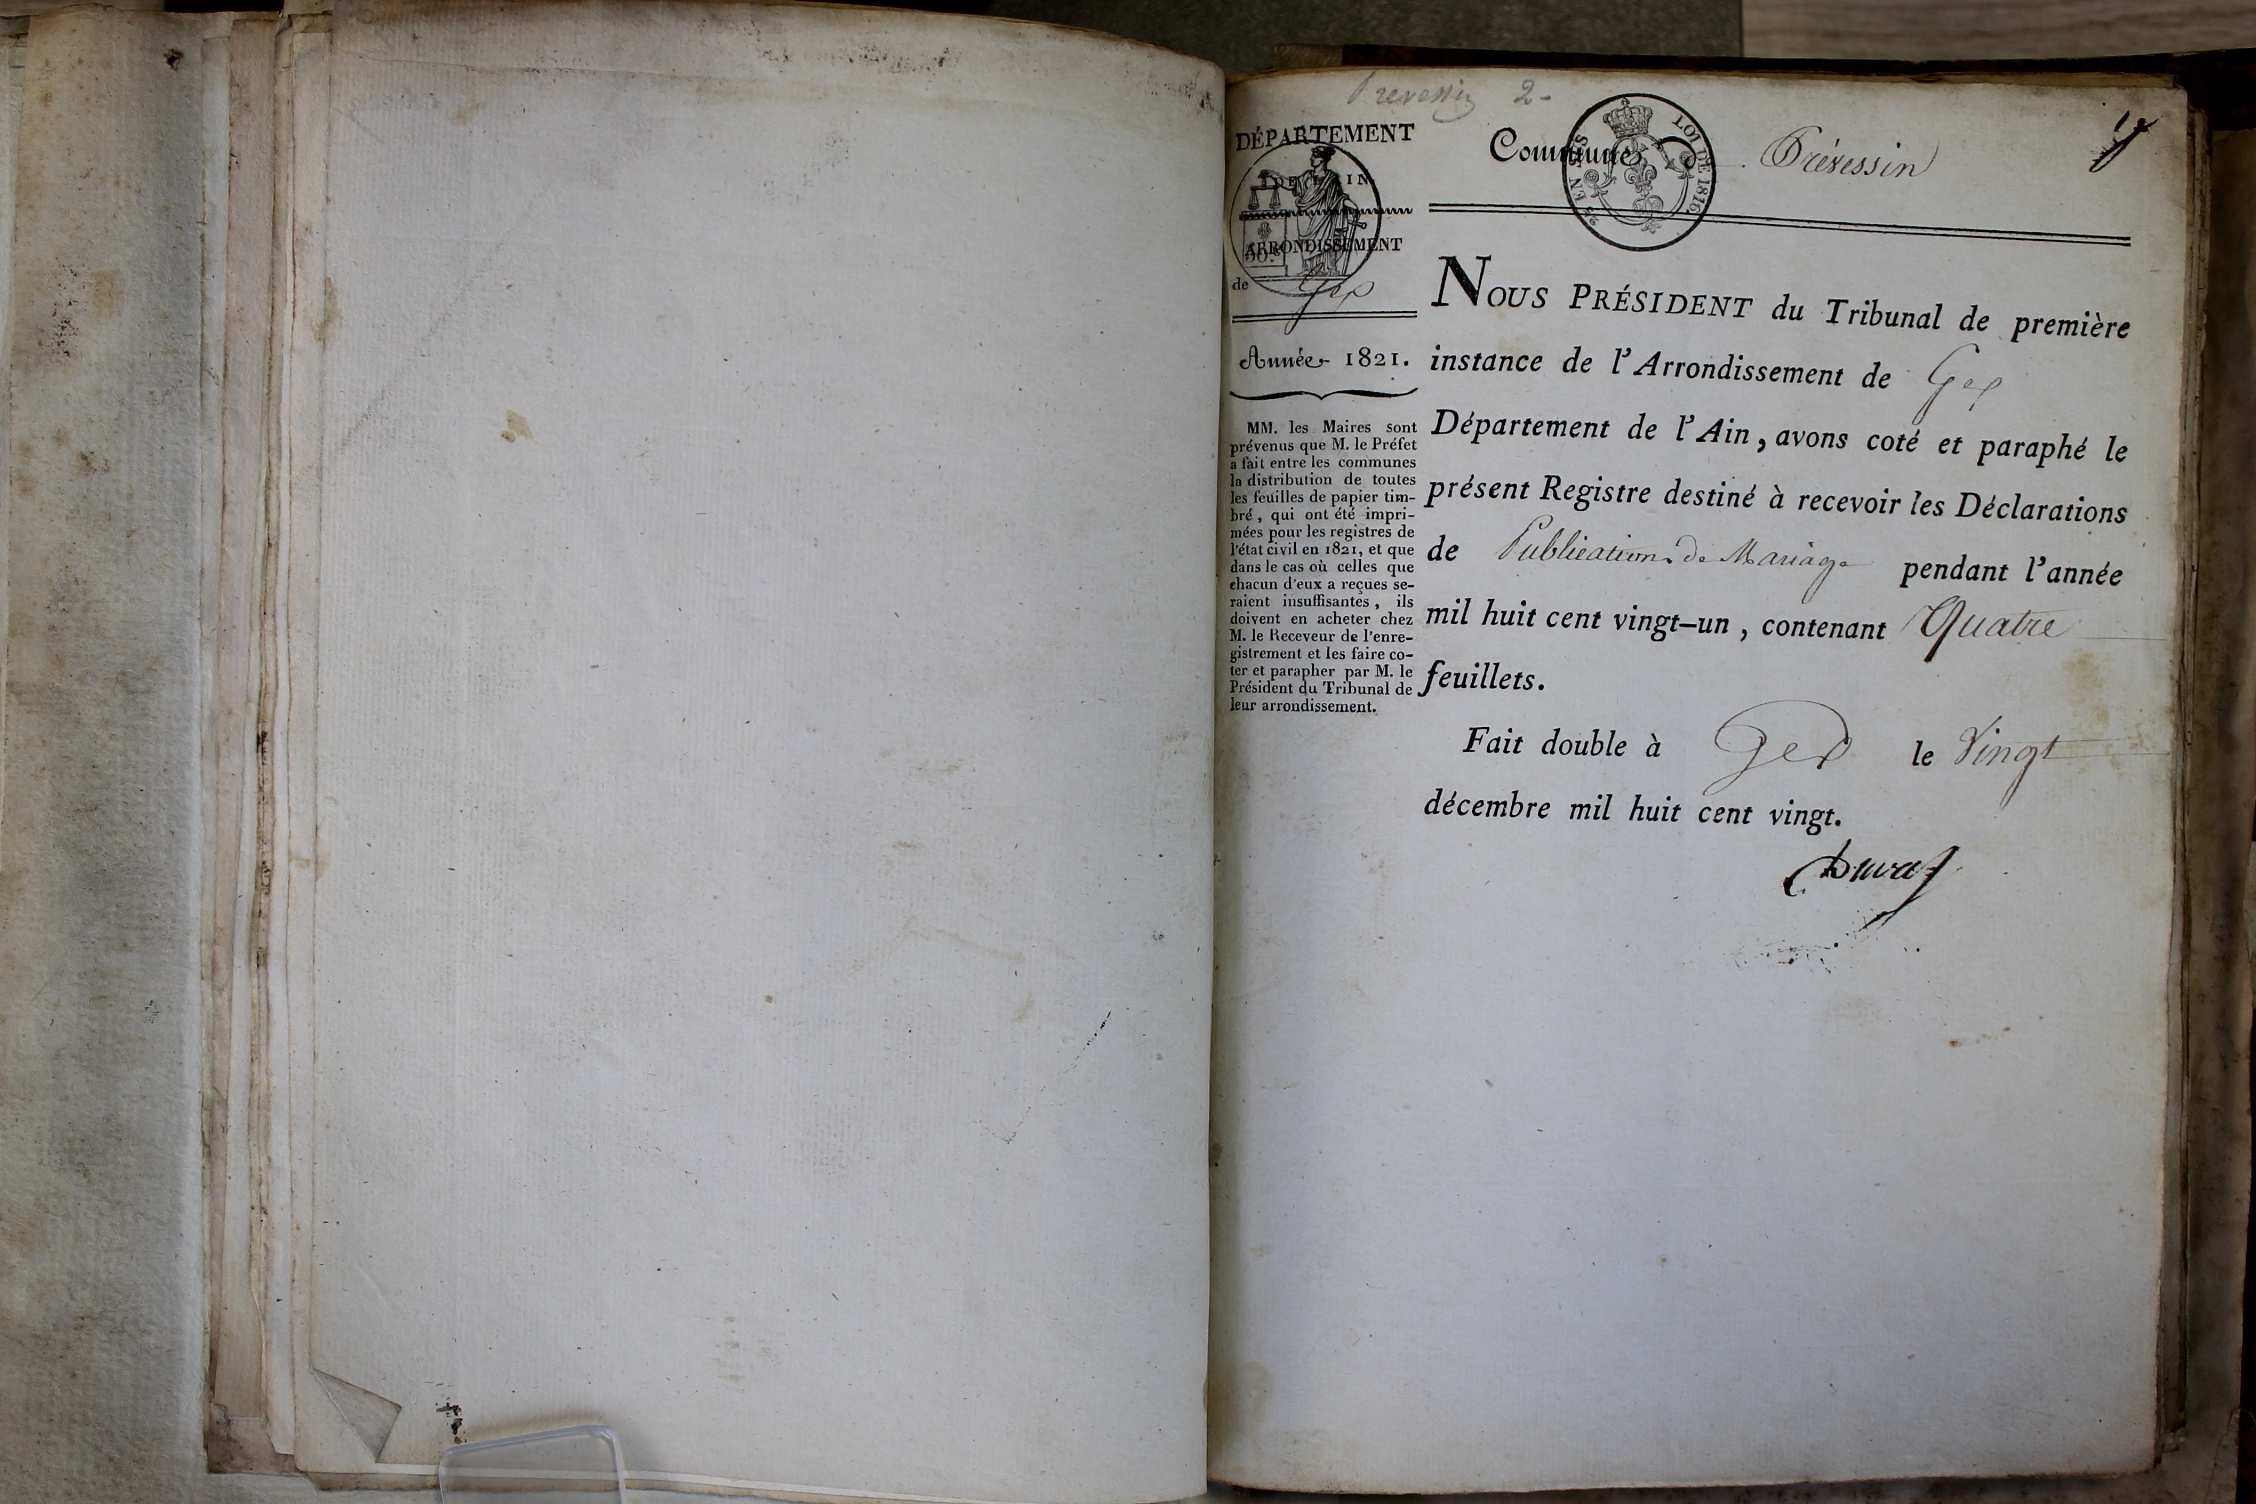 Prevessin 2-
DÉPARTEMENT
DE L'AIN
ARRONDISSEMENT
de Gex
Année 1821.
MM. les Maires sont
prévenus que M. le Préfet
a fait entre les communes
la distribution de toutes
les feuilles de papier tim-
bré, qui ont été impri-
mées pour les registres de
l'état civil en 1821, et que
dans le cas où celles que
chacun d'eux a reçues se-
raient insuffisantes, ils
doivent en acheter chez
M. le Receveur de l'enre-
gistrement et les faire co-
ter et parapher par M. le
Président du Tribunal de
leur arrondissement.
Commune de Prévessin
LOI DE 1816
NOUS PRÉSIDENT du Tribunal de première
instance de l'Arrondissement de Gex
Département de l'Ain, avons coté et paraphé le
présent Registre destiné à recevoir les Déclarations
de Publications de Mariage pendant l'année
mil huit cent vingt-un, contenant Quatre
feuillets.
Fait double à Gex le Vingt
décembre mil huit cent vingt.